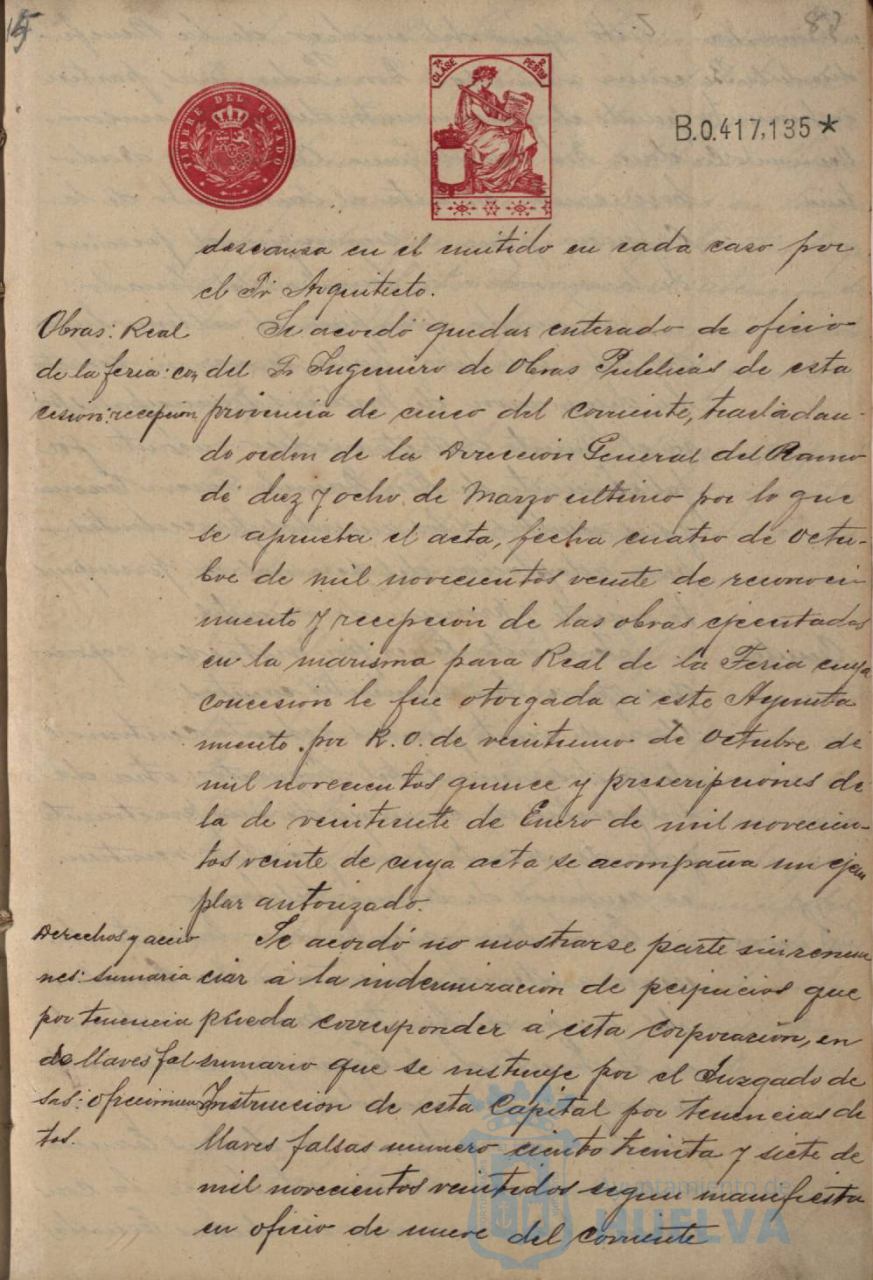 15
83
TIMBRE DEL ESTADO
7ª CLASE 2 PESETAS
B.0.417,135*
descansa en el emitido en cada caso por
el Sr Arquitecto.
Obras: Real
de la feria: con
cesion: recepcion
Se acordó quedar enterado de oficio
del Sr Ingeniero de Obras Publicas de esta
provincia de cinco del corriente, trasladan-
do orden de la Dirección General del Ramo
de diez y ocho de Marzo ultimo por lo que
se aprueba el acta, fecha cuatro de Octu-
bre de mil novecientos veinte de reconoci
miento y recepción de las obras ejecutadas
en la marisma para Real de la Feria cuya
concesion le fue otorgada a este Ayunta
miento por R.O. de veintiuno de Octubre de
mil novecientos quince y prescripciones de
la de veintisiete de Enero de mil novecien-
tos veinte de cuya acta se acompaña un ejem
plar autorizado.
Derechos y accio
nes: sumaria
por tenencia
de llaves fal
sas: ofrecimien
tos.
Se acordó no mostrarse parte sin renun
ciar á la indemnización de perjuicios que
pueda corresponder á esta Corporación, en
sumario que se instruye por el Juzgado de
Instruccion de esta Capital por tenencias de
llaves falsas numero ciento treinta y siete de
mil novecientos veintidos segun manifiesta
en oficio de nueve del corriente
Ayuntamiento de
HUELVA